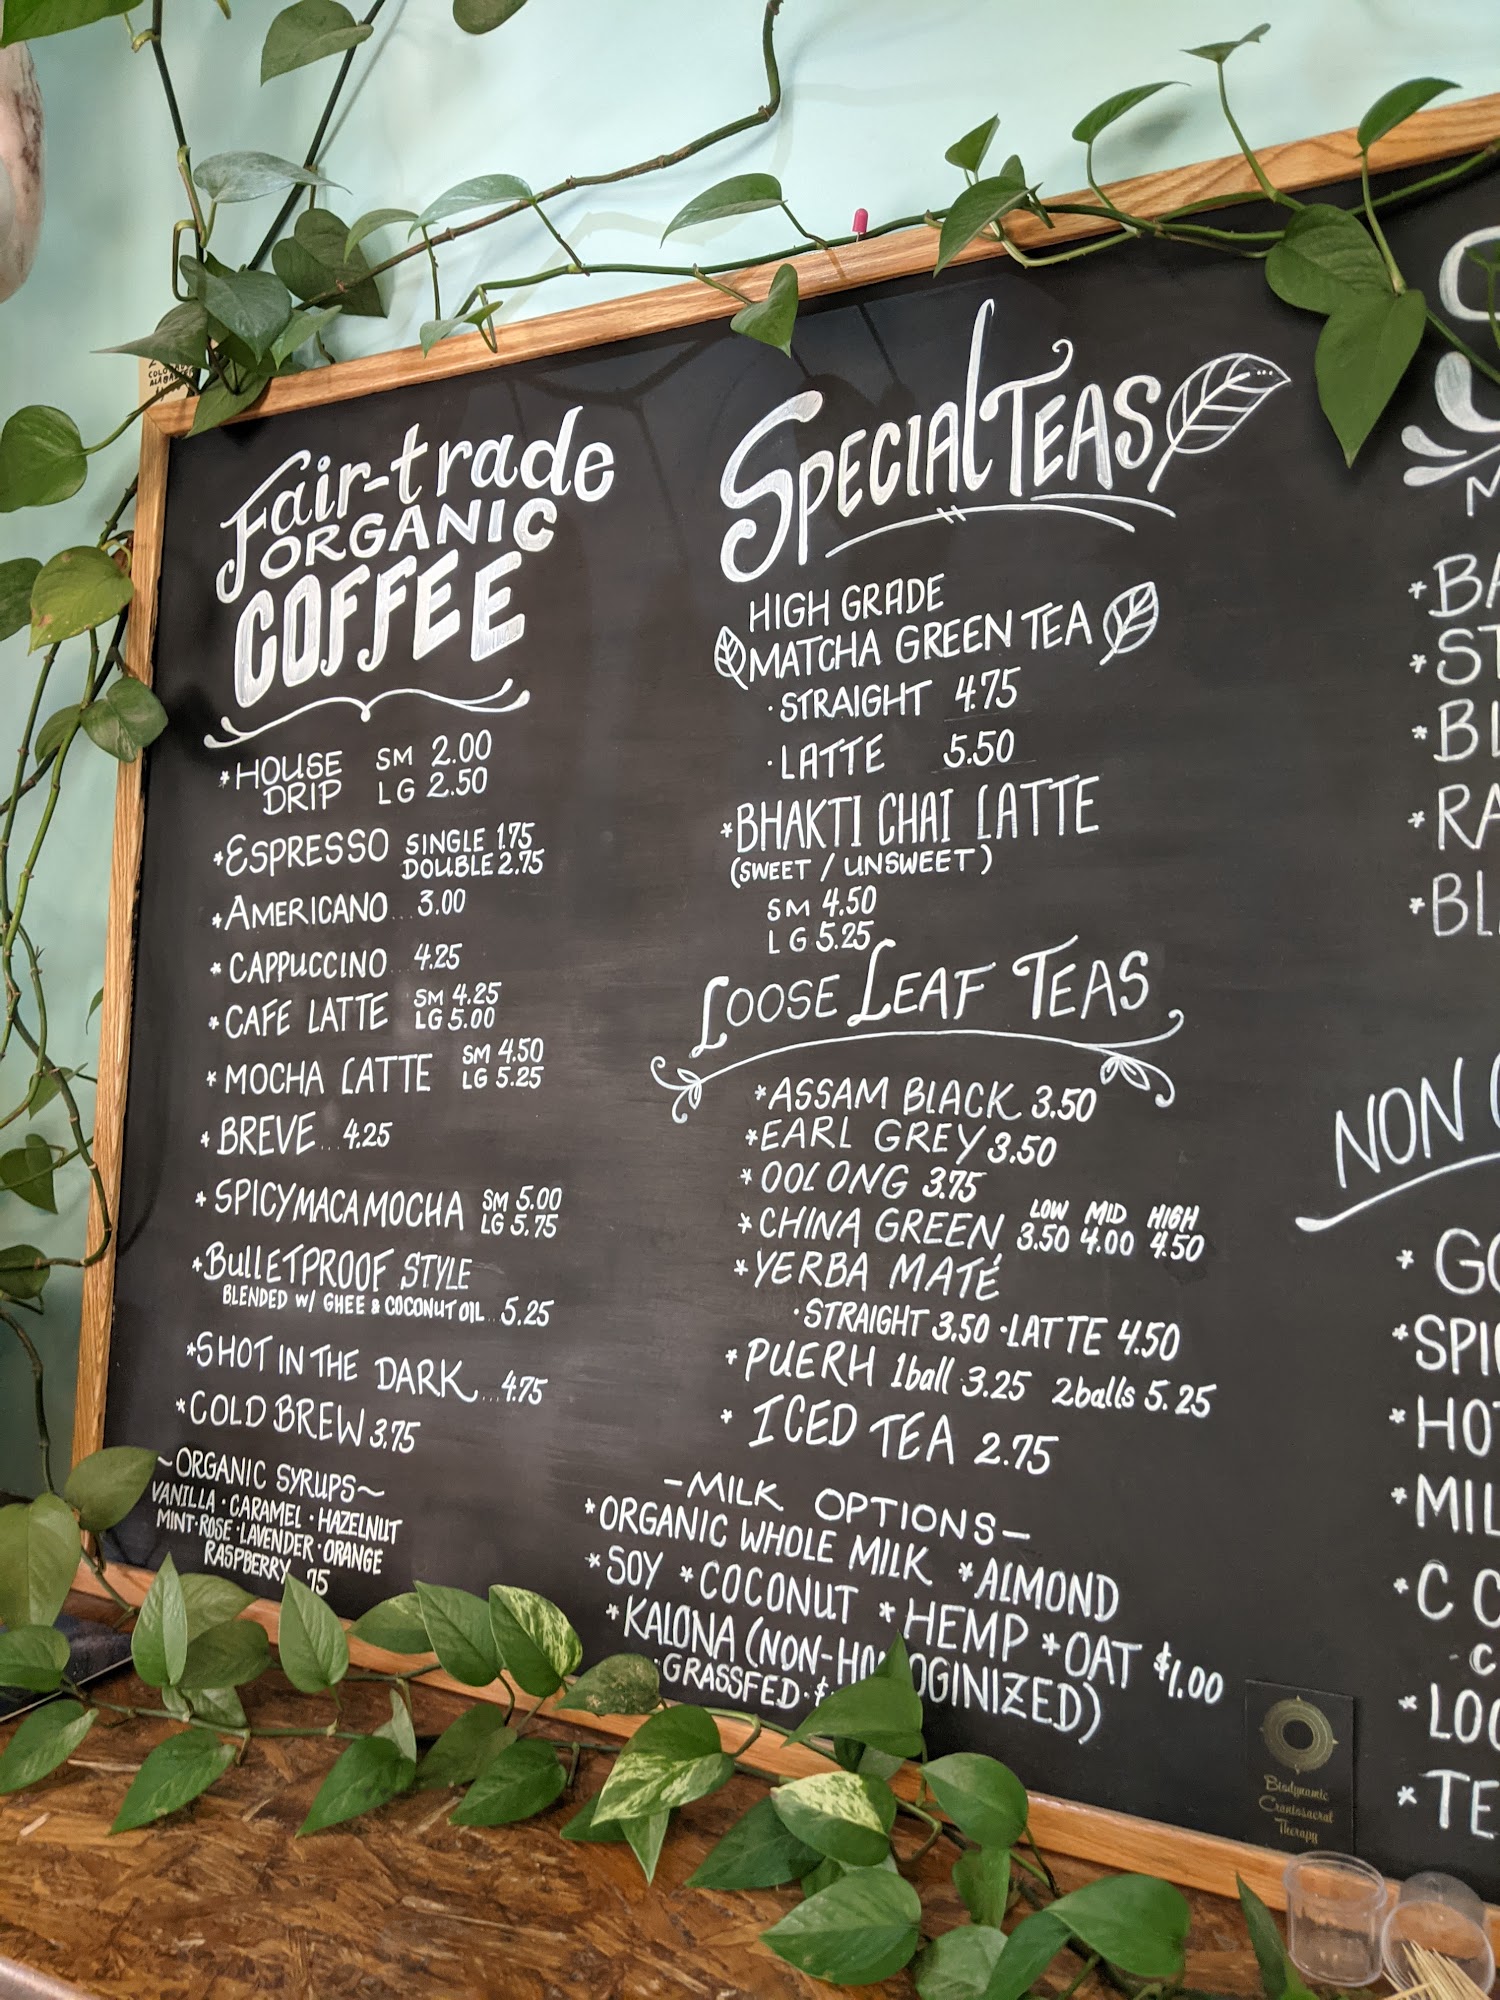 Fair-trade
ORGANIC
COFFEE
*HOUSE DRIP SM 2.00
LG 2.50
*ESPRESSO SINGLE 1.75
DOUBLE 2.75
*AMERICANO... 3.00
*CAPPUCCINO 4.25
*CAFE LATTE SM 4.25
LG 5.00
*MOCHA LATTE SM 4.50
LG 5.25
*BREVE... 4.25
*SPICY MACA MOCHA SM 5.00
LG 5.75
*BULLETPROOF STYLE
BLENDED W/ GHEE & COCONUT OIL... 5.25
*SHOT IN THE DARK... 4.75
*COLD BREW 3.75
~ORGANIC SYRUPS~
VANILLA · CARAMEL · HAZELNUT
MINT · ROSE · LAVENDER · ORANGE
RASPBERRY .75
SPECIALTEAS
HIGH GRADE
MATCHA GREEN TEA
· STRAIGHT 4.75
· LATTE 5.50
*BHAKTI CHAI LATTE
(SWEET / UNSWEET)
SM 4.50
LG 5.25
LOOSE LEAF TEAS
*ASSAM BLACK 3.50
*EARL GREY 3.50
*OOLONG 3.75
LOW MID HIGH
*CHINA GREEN 3.50 4.00 4.50
*YERBA MATÉ
· STRAIGHT 3.50 · LATTE 4.50
*PUERH 1ball 3.25 2balls 5.25
* ICED TEA 2.75
-MILK OPTIONS-
*ORGANIC WHOLE MILK *ALMOND
*SOY *COCONUT *HEMP *OAT $1.00
*KALONA (NON-HO OGINIZED)
· GRASSFED · $
Biodynamic
Craniosacral
Therapy
NON
* GO
*SPI
*HOT
*MIL